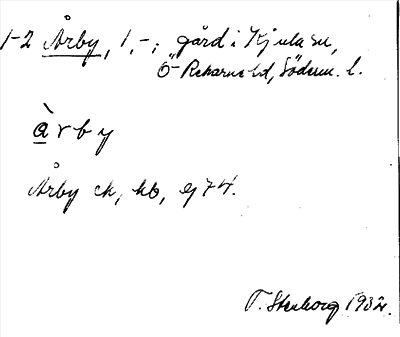 1-2 Årby, 1,-; gård i Kjula sn,
Ö-Rekarne hd, Söderm. l.
àrby
Årby ek, kb, gj 74.
T. Stenborg 1932.